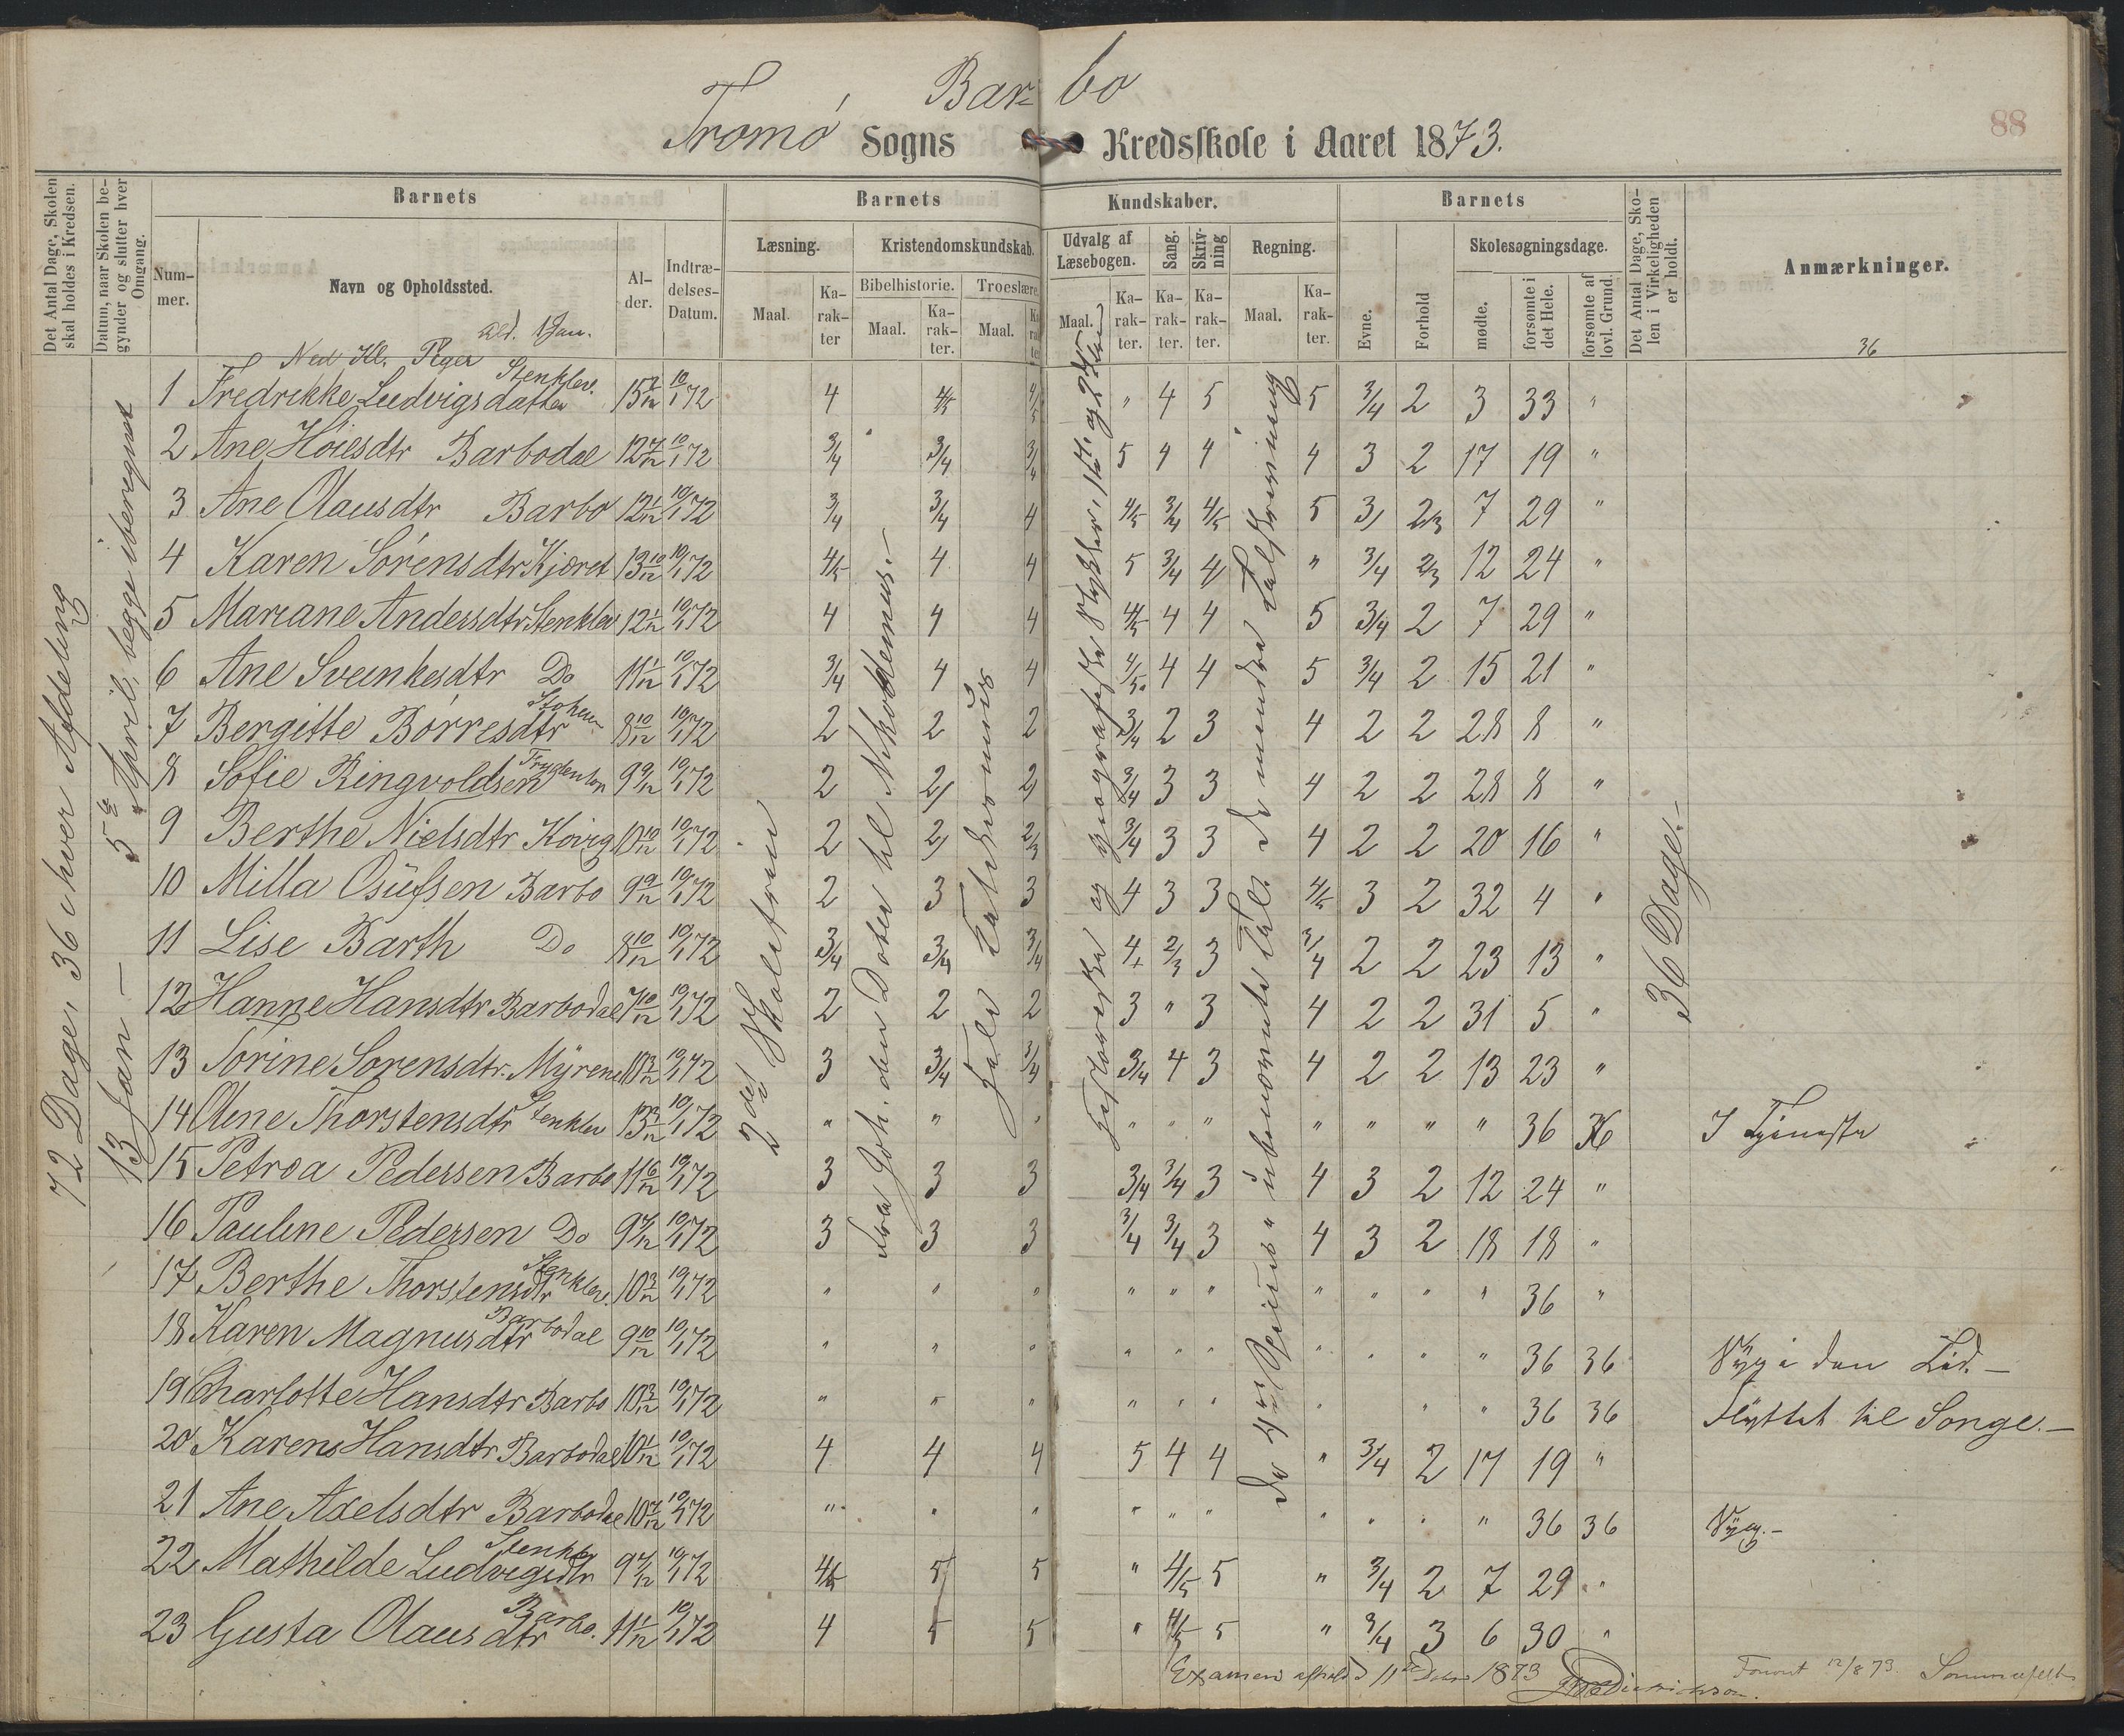 Barbo
Tromø Sogns Kredsskole i Aaret 1873.
88
Det Antal Dage, Skolen skal holdes i Kredsen.
Datum, naar Skolen begynder og slutter hver Omgang.
Barnets
Nummer.
Navn og Opholdssted.
Alder.
Indtrædelses-Datum.
Barnets Kundskaber.
Læsning.
Maal.
Karakter
Kristendomskundskab.
Bibelhistorie.
Maal.
Karakter.
Troeslære.
Maal.
Karakter
Udvalg af Læsebogen.
Maal.
Karakter.
Sang.
Karakter.
Skrivning
Karakter.
Regning.
Maal.
Karakter.
Barnets
Evne.
Forhold
Skolesøgningsdage.
mødte.
forsømte i det Hele.
forsømte af lovl. Grund.
Det Antal Dage, Skolen i Virkeligheden er holdt.
Anmærkninger.
36
72 Dage, 36 i hver Afdeling
13 Jan – 5te April, begge iberegnet
Ned Kl. Piger Ald. 1 Jan.
2det Skoletrin
Fra Joh. den Døber til Nikodemus.
36 Dage.–
1 Fredrikke Ludvigsdatter Stenklev. 15 7/12 10/1 72 4 4/5 4/5 " 4 5 5 3/4 2 3 33 "
2 Ane Høiesdtr Barbodal 12 7/12 10/1 72 3/4 3/4 3/4 5 4 4 4 3 2 17 19 "
3 Ane Olausdtr Barbo 12 1/12 10/1 72 3/4 3/4 4 4/5 3/4 4/5 5 3 2/3 7 29 "
4 Karen Sørensdtr Kjæret 13 10/12 10/1 72 4/5 4 4 5 3/4 4 " 3/4 2/3 12 24 "
5 Mariane Andersdtr Stenklev 12 1/12 10/1 72 4 4 4 4/5 4 4 5 3/4 2 7 29 "
6 Ane Sveinkesdtr Do 11 1/12 10/1 72 3/4 4 4 4/5 4 4 5 3/4 2 15 21 "
7 Bergitte Børresdtr 8 10/12 10/1 72 2 2 2 3/4 2 3 4 2 2 28 8 "
8 Sofie Ringvoldsen 9 9/12 10/1 72 2 2 2 3/4 3 3 4 2 2 28 8 "
9 Berthe Nielsdtr 10 10/12 10/1 72 2 2 2/3 3/4 3 3 4 2 2 20 16 "
10 Milla Osufsen Barbo 9 9/12 10/1 72 2 3 3 4 3 3 4/5 3 2 32 4 "
11 Lise Barth Do 8 10/12 10/1 72 3/4 3/4 3/4 4 2/3 3 3/4 2 2 23 13 "
12 Hanne Hansdtr. Barbodal 7 10/12 10/1 72 2 2 2 3 " 3 4 2 2 31 5 "
13 Torine Sorensdtr. Myrene 10 3/12 10/1 72 3 3/4 3/4 3/4 4 3 4 2 2 13 23 "
14 Olene Thorstensdtr Stenklev 13 10/1 72 " " " " " " " " " " 36 36 I Tjeneste
15 Petrea Pedersen Barbo 11 6/12 10/1 72 3 3 3 3/4 3/4 3 4 3 2 12 24 "
16 Pauline Pedersen Do 9 7/12 10/1 72 3 3 3 3/4 3/4 3 4 3 2 18 18 "
17 Berthe Thorstensdtr Stenklev. 10 3/12 10/1 72 " " " " " " " " " " 36 "
18 Karen Magnusdtr Barbodal 9 10/12 10/1 72 " " " " " " " " " " 36 36 Syg i den Tid.–
19 Charlotte Hansdtr Barbo 10 3/12 10/1 72 " " " " " " " " " " 36 36 Flyttet til Songe.–
20 Karen Hansdtr Barbodal 10 1/12 10/1 72 4 4 4 5 4 4 " 3/4 2 17 19 "
21 Ane Axelsdtr Barbodal 10 7/12 10/1 72 " " " " " " " " " " 36 36 Syg.–
22 Mathilde Ludvigsdtr Stenklev 9 7/12 10/1 72 4/5 5 5 " 4/5 5 " 3/4 2 7 29 "
23 Gusta Olausdtr Barbo. 11 1/12 10/1 72 4 5 5 " 4/5 5 " 3/4 3 6 30 "
Examen afholdt 11te 1873
12/8 73 Sommerfeldt